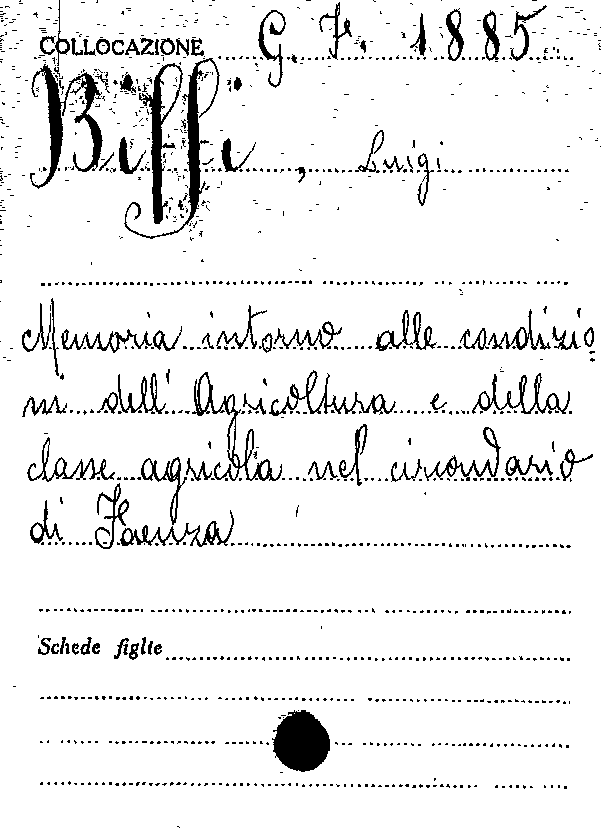 COLLOCAZIONE G. F. 1885
Biffi, Luigi
Memoria intorno alle condizio
ni dell' Agricoltura e della
classe agricola nel circondario
di Faenza
Schede figlie